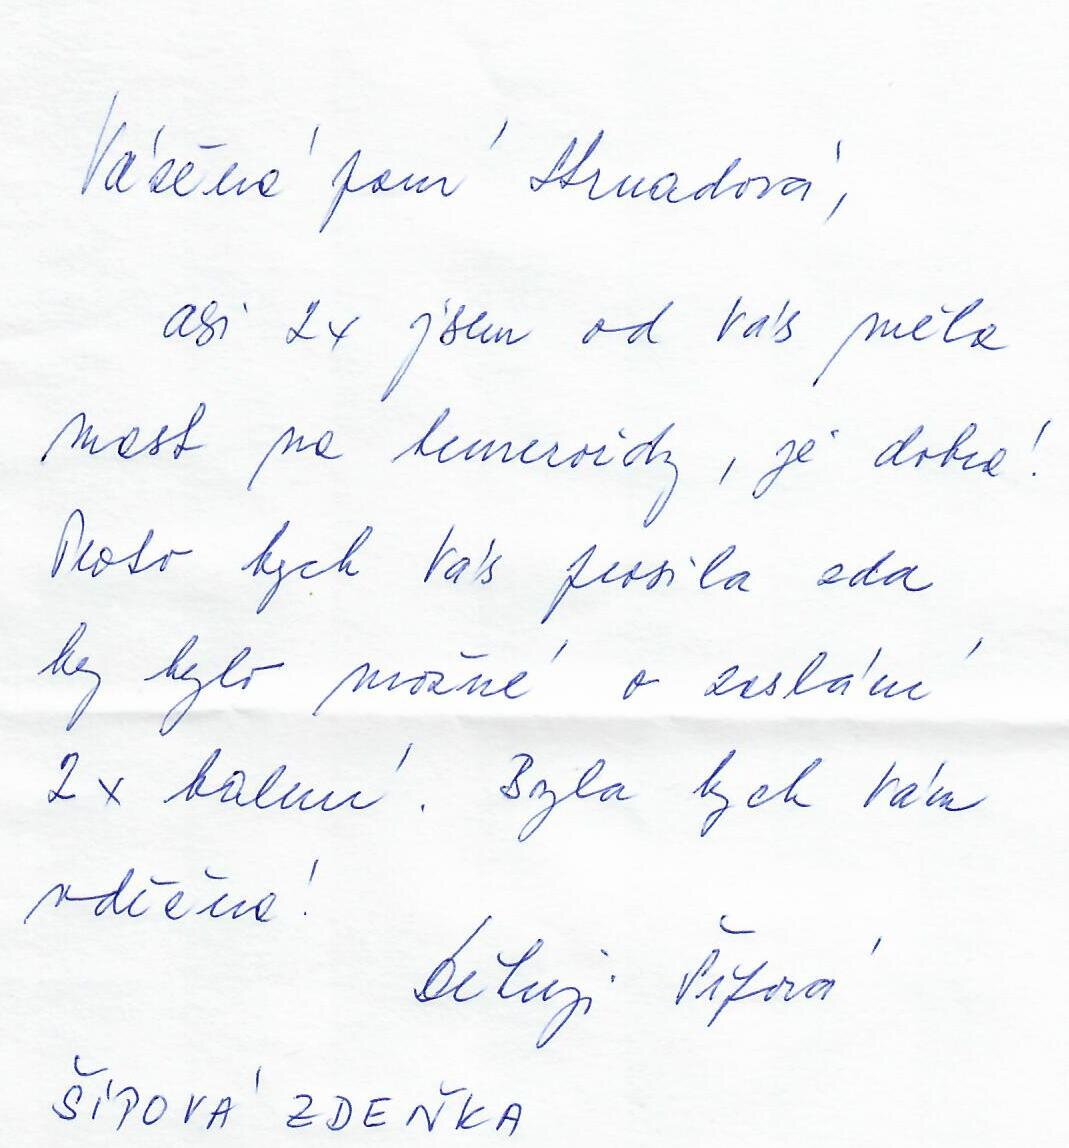 Vážená paní Strnadová,
asi 2x jsem od Vás měla
mast na hemeroidy, je dobrá!
Proto bych Vás prosila zda
by bylo možné o zaslání
2x balení. Byla bych Vám
vděčná!
Děkuji Šípová
ŠÍPOVÁ ZDEŇKA